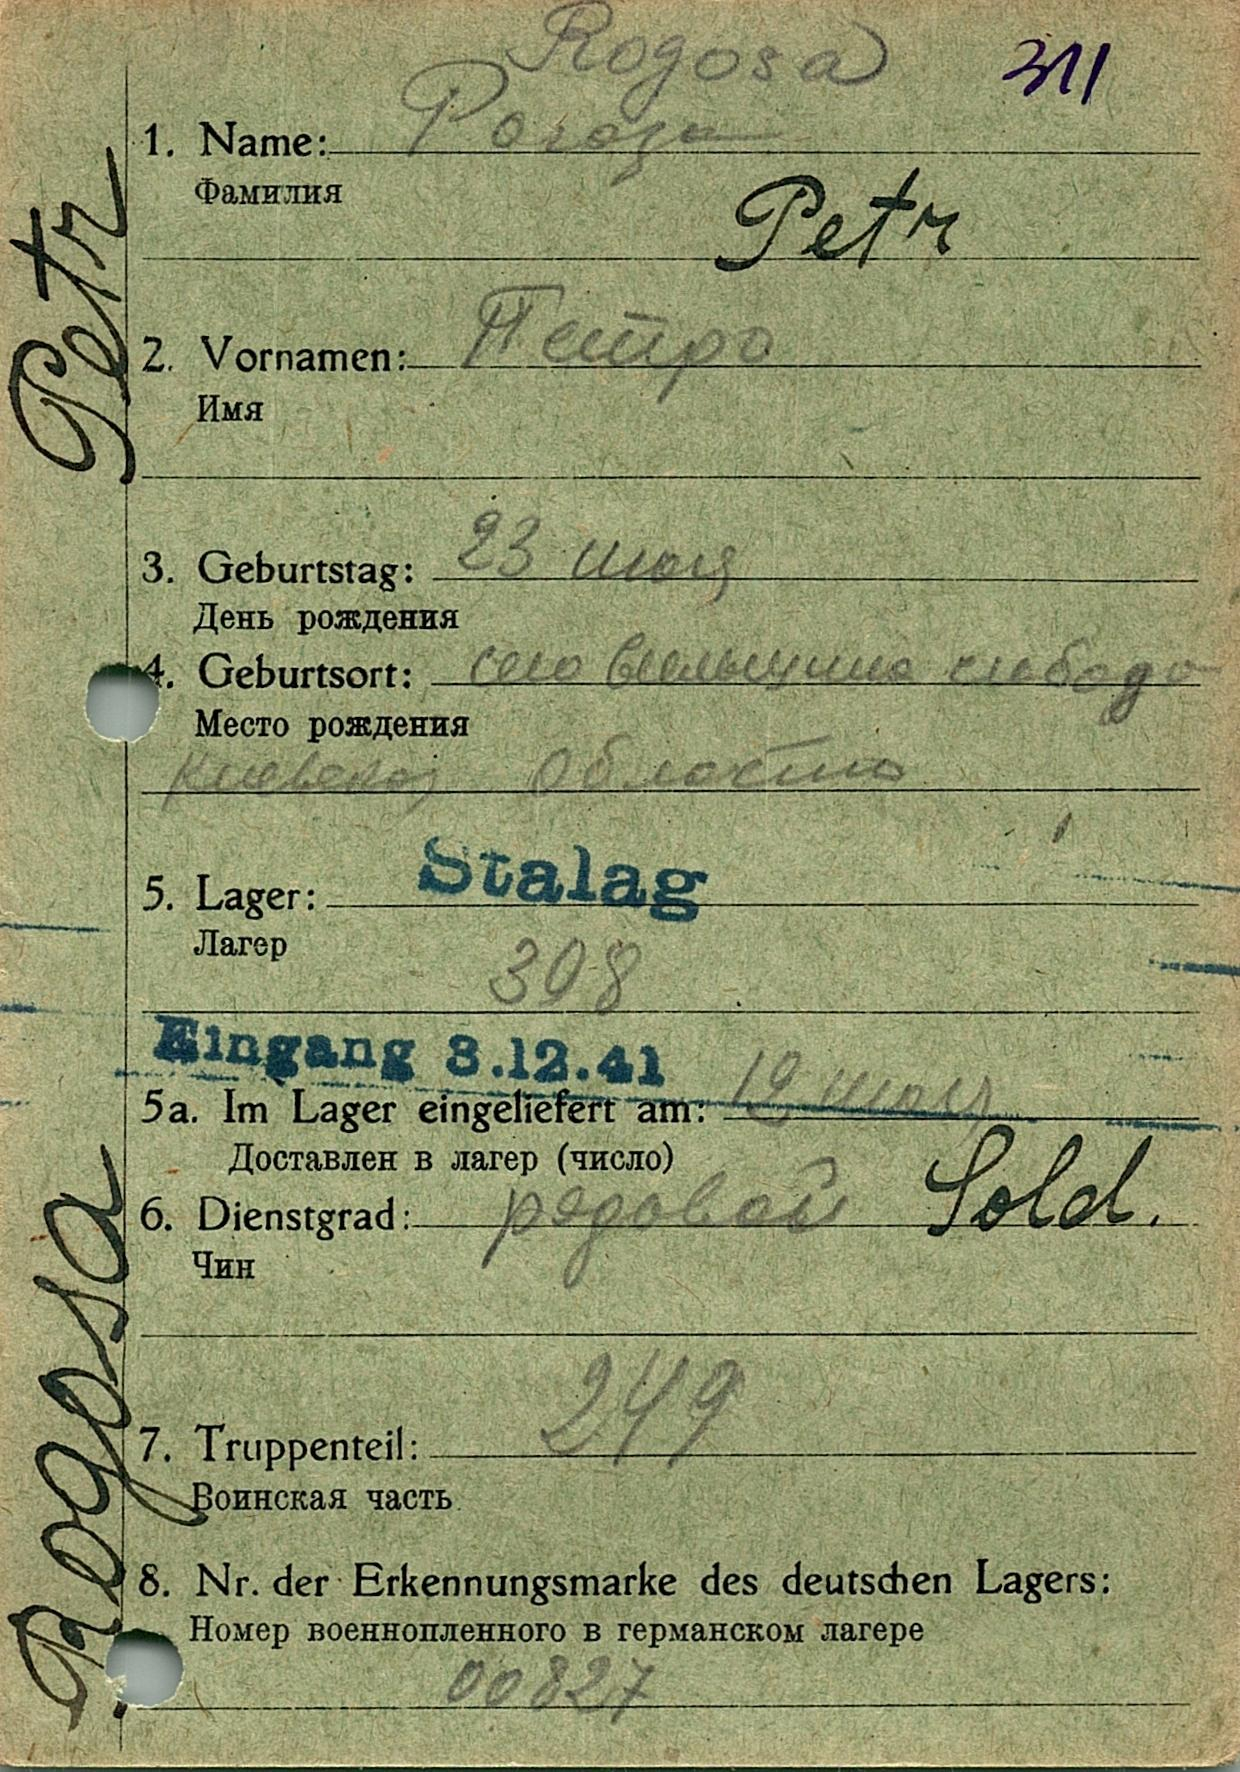 Rogosa
311
1. Name: Рогоза
Фамилия
Petr
2. Vornamen: Петро
Имя
3. Geburtstag: 23 июля
День рождения
4. Geburtsort: село слобода
Место рождения
киевской области
5. Lager: Stalag
Лагер
398
Eingang 3.12.41
5a. Im Lager eingeliefert am: 12 июля
Доставлен в лагер (число)
6. Dienstgrad: рядовой Sold.
Чин
249
7. Truppenteil:
Воинская часть
8. Nr. der Erkennungsmarke des deutschen Lagers:
Номер военнопленного в германском лагере
00827
Rogosa Petr